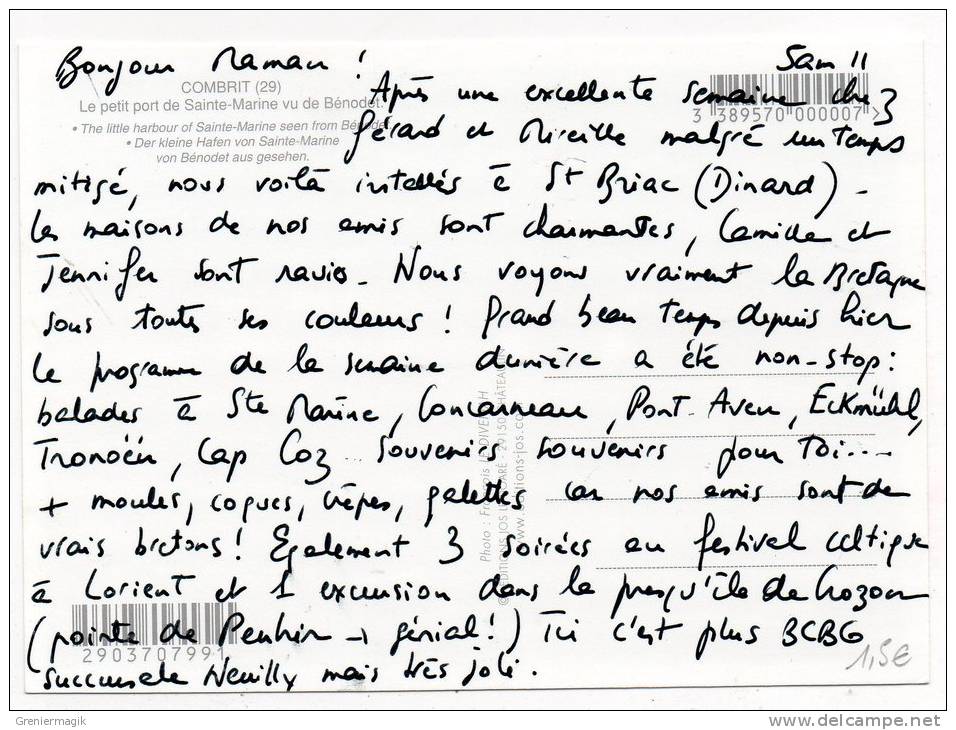 Bonjour Maman ! Sam 11
COMBRIT (29)
Le petit port de Sainte-Marine vu de Bénodet.
• The little harbour of Sainte-Marine seen from Bénodet
• Der kleine Hafen von Sainte-Marine
von Bénodet aus gesehen.
3 389570 000007 >
Après une excellente semaine chez
Gérard et Mireille malgré un temps
mitigé, nous voilà installés à St Briac (Dinard) -
les maisons de nos amis sont charmantes, Camille et
Jennifer sont ravies - Nous voyons vraiment la Bretagne
sous toutes ses couleurs ! Grand beau temps depuis hier
Le programme de la semaine dernière a été non-stop :
balades à Ste Marine, Concarneau, Pont-Aven, Eckmühl,
Tronoën, Cap Coz ... Souvenirs souvenirs pour toi ....
+ moules, coques, crêpes, galettes car nos amis sont de
vrais bretons ! Egalement 3 soirées au festival celtique
à Lorient et 1 excursion dans la presqu'île de Crozon
(pointe de Penhir → génial !) Ici c'est plus BCBG
succursale Neuilly mais très joli.
Photo :
ÉDITIONS JOS
2903707991
1,5€
Greniermagik
delcampe.net